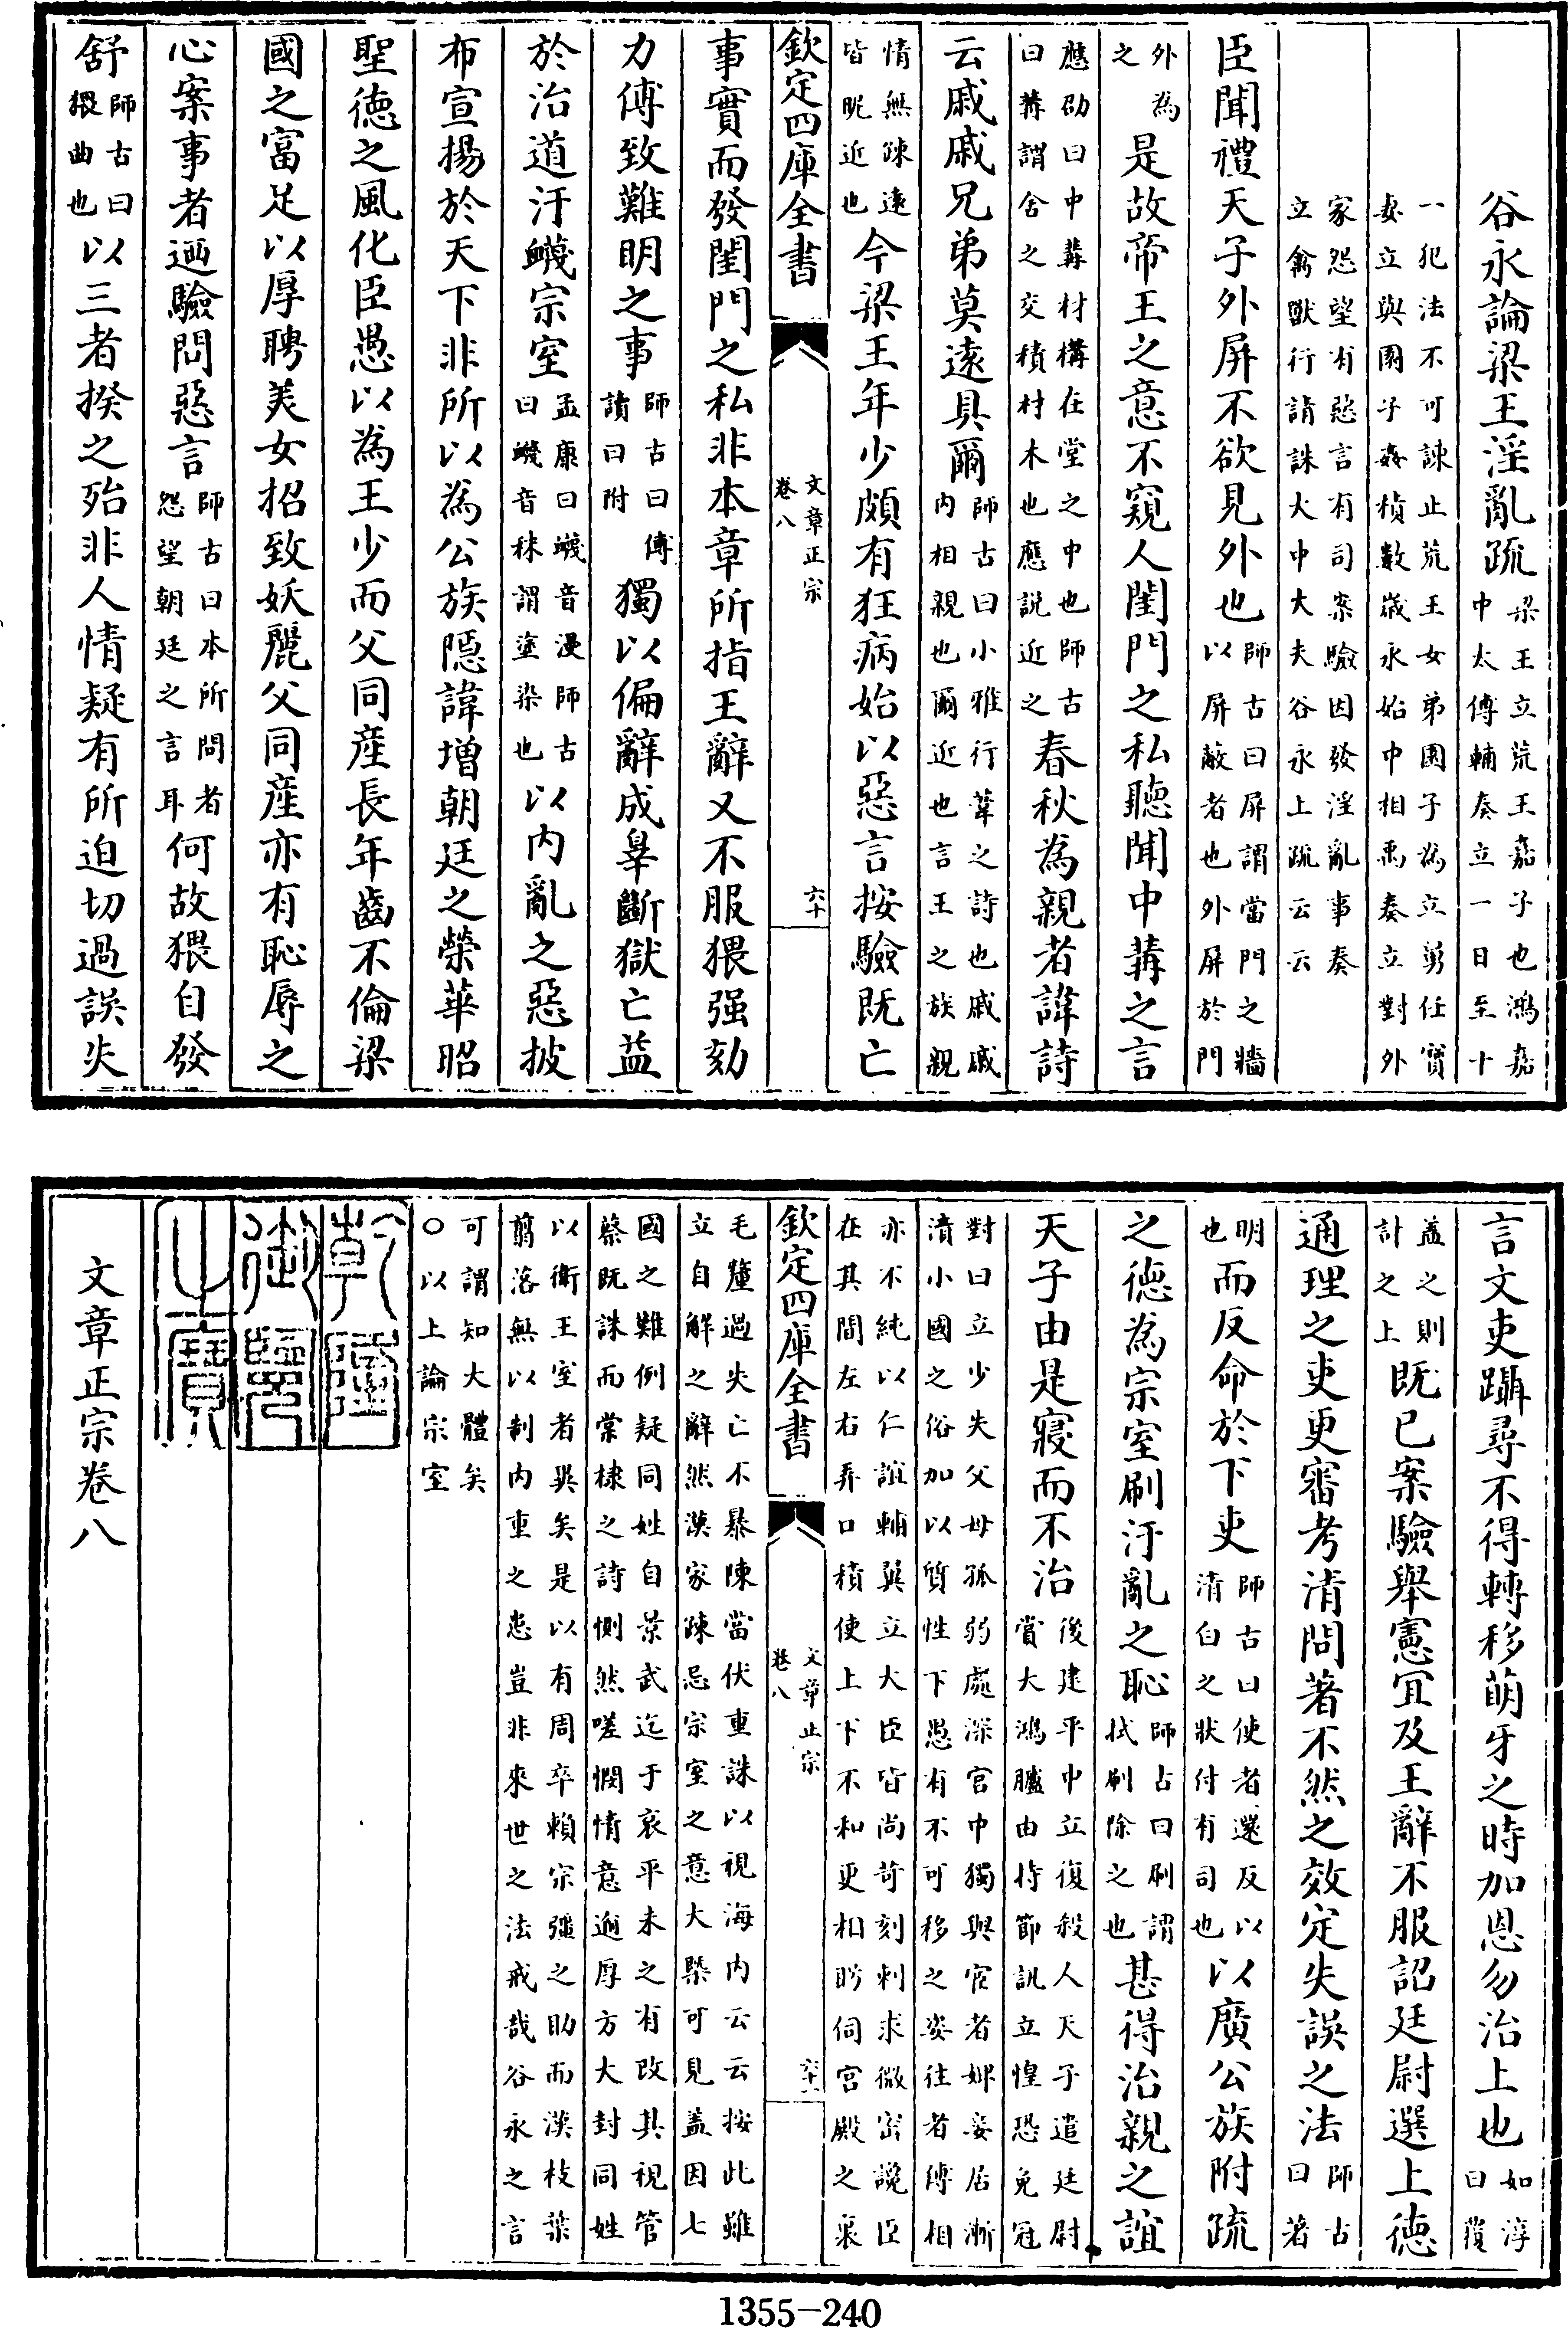 谷永論梁王淫亂疏梁王立荒王嘉子也鴻嘉中太傅輔奏立一日至十
一犯法不可諫止荒王女弟園子為立舅任寶妻立與園子姦積數歲永始中相禹奏立對外
家怨望有惡言有司案驗因發淫亂事奏立禽獸行請誅大中大夫谷永上疏云云
臣聞禮天子外屏不欲見外也師古曰屏謂當門之牆以屏蔽者也外屏於門
外為之是故帝王之意不窺人閨門之私聽聞中冓之言
應劭曰中冓材構在堂之中也師古曰冓謂舍之交積材木也應説近之春秋為親者諱詩
云戚戚兄弟莫遠具爾師古曰小雅行葦之詩也戚戚内相親也爾近也言王之族親
情無疎遠皆昵近也今梁王年少頗有狂病始以惡言按驗既亡
欽定四庫全書 文章正宗 卷八 六十
事實而發閨門之私非本章所指王辭又不服猥强劾
力傅致難明之事師古曰傅讀曰附獨以偏辭成辠斷獄亡益
於治道汙衊宗室孟康曰衊音漫師古曰衊音秣謂塗染也以内亂之惡披
布宣揚於天下非所以為公族隱諱增朝廷之榮華昭
聖德之風化臣愚以為王少而父同產長年齒不倫梁
國之富足以厚聘美女招致妖麗父同產亦有恥辱之
心案事者迺驗問惡言師古曰本所問者怨望朝廷之言耳何故猥自發
舒師古曰猥曲也以三者揆之殆非人情疑有所迫切過誤失
言文吏躡尋不得轉移萌牙之時加恩勿治上也如淳曰覆
蓋之則計之上既已案驗舉憲宜及王辭不服詔廷尉選上德
通理之吏更審考清問著不然之效定失誤之法師古曰著
明也而反命於下吏師古曰使者還反以清白之狀付有司也以廣公族附疏
之德為宗室刷汙亂之恥師古曰刷謂拭刷除之也甚得治親之誼
天子由是寢而不治後建平中立復殺人天子遣廷尉賞大鴻臚由持節訊立惶恐免冠
對曰立少失父母孤弱處深宫中獨與宦者婢妾居漸漬小國之俗加以質性下愚有不可移之姿往者傅相
亦不純以仁誼輔翼立大臣皆尚苛刻刺求微密讒臣在其間左右弄口積使上下不和更相眄伺宫殿之裏
欽定四庫全書 文章正宗 卷八 六十一
毛釐過失亡不暴陳當伏重誅以視海内云云按此雖立自解之辭然漢家疎忌宗室之意大槩可見蓋因七
國之難例疑同姓自景武迄于哀平未之有改其視管蔡既誅而棠棣之詩惻然嗟憫情意逾厚方大封同姓
以衛王室者異矣是以有周卒賴宗彊之助而漢枝葉翦落無以制内重之患豈非來世之法戒哉谷永之言
可謂知大體矣○以上論宗室
乾隆御覽之寶
文章正宗卷八
1355—240